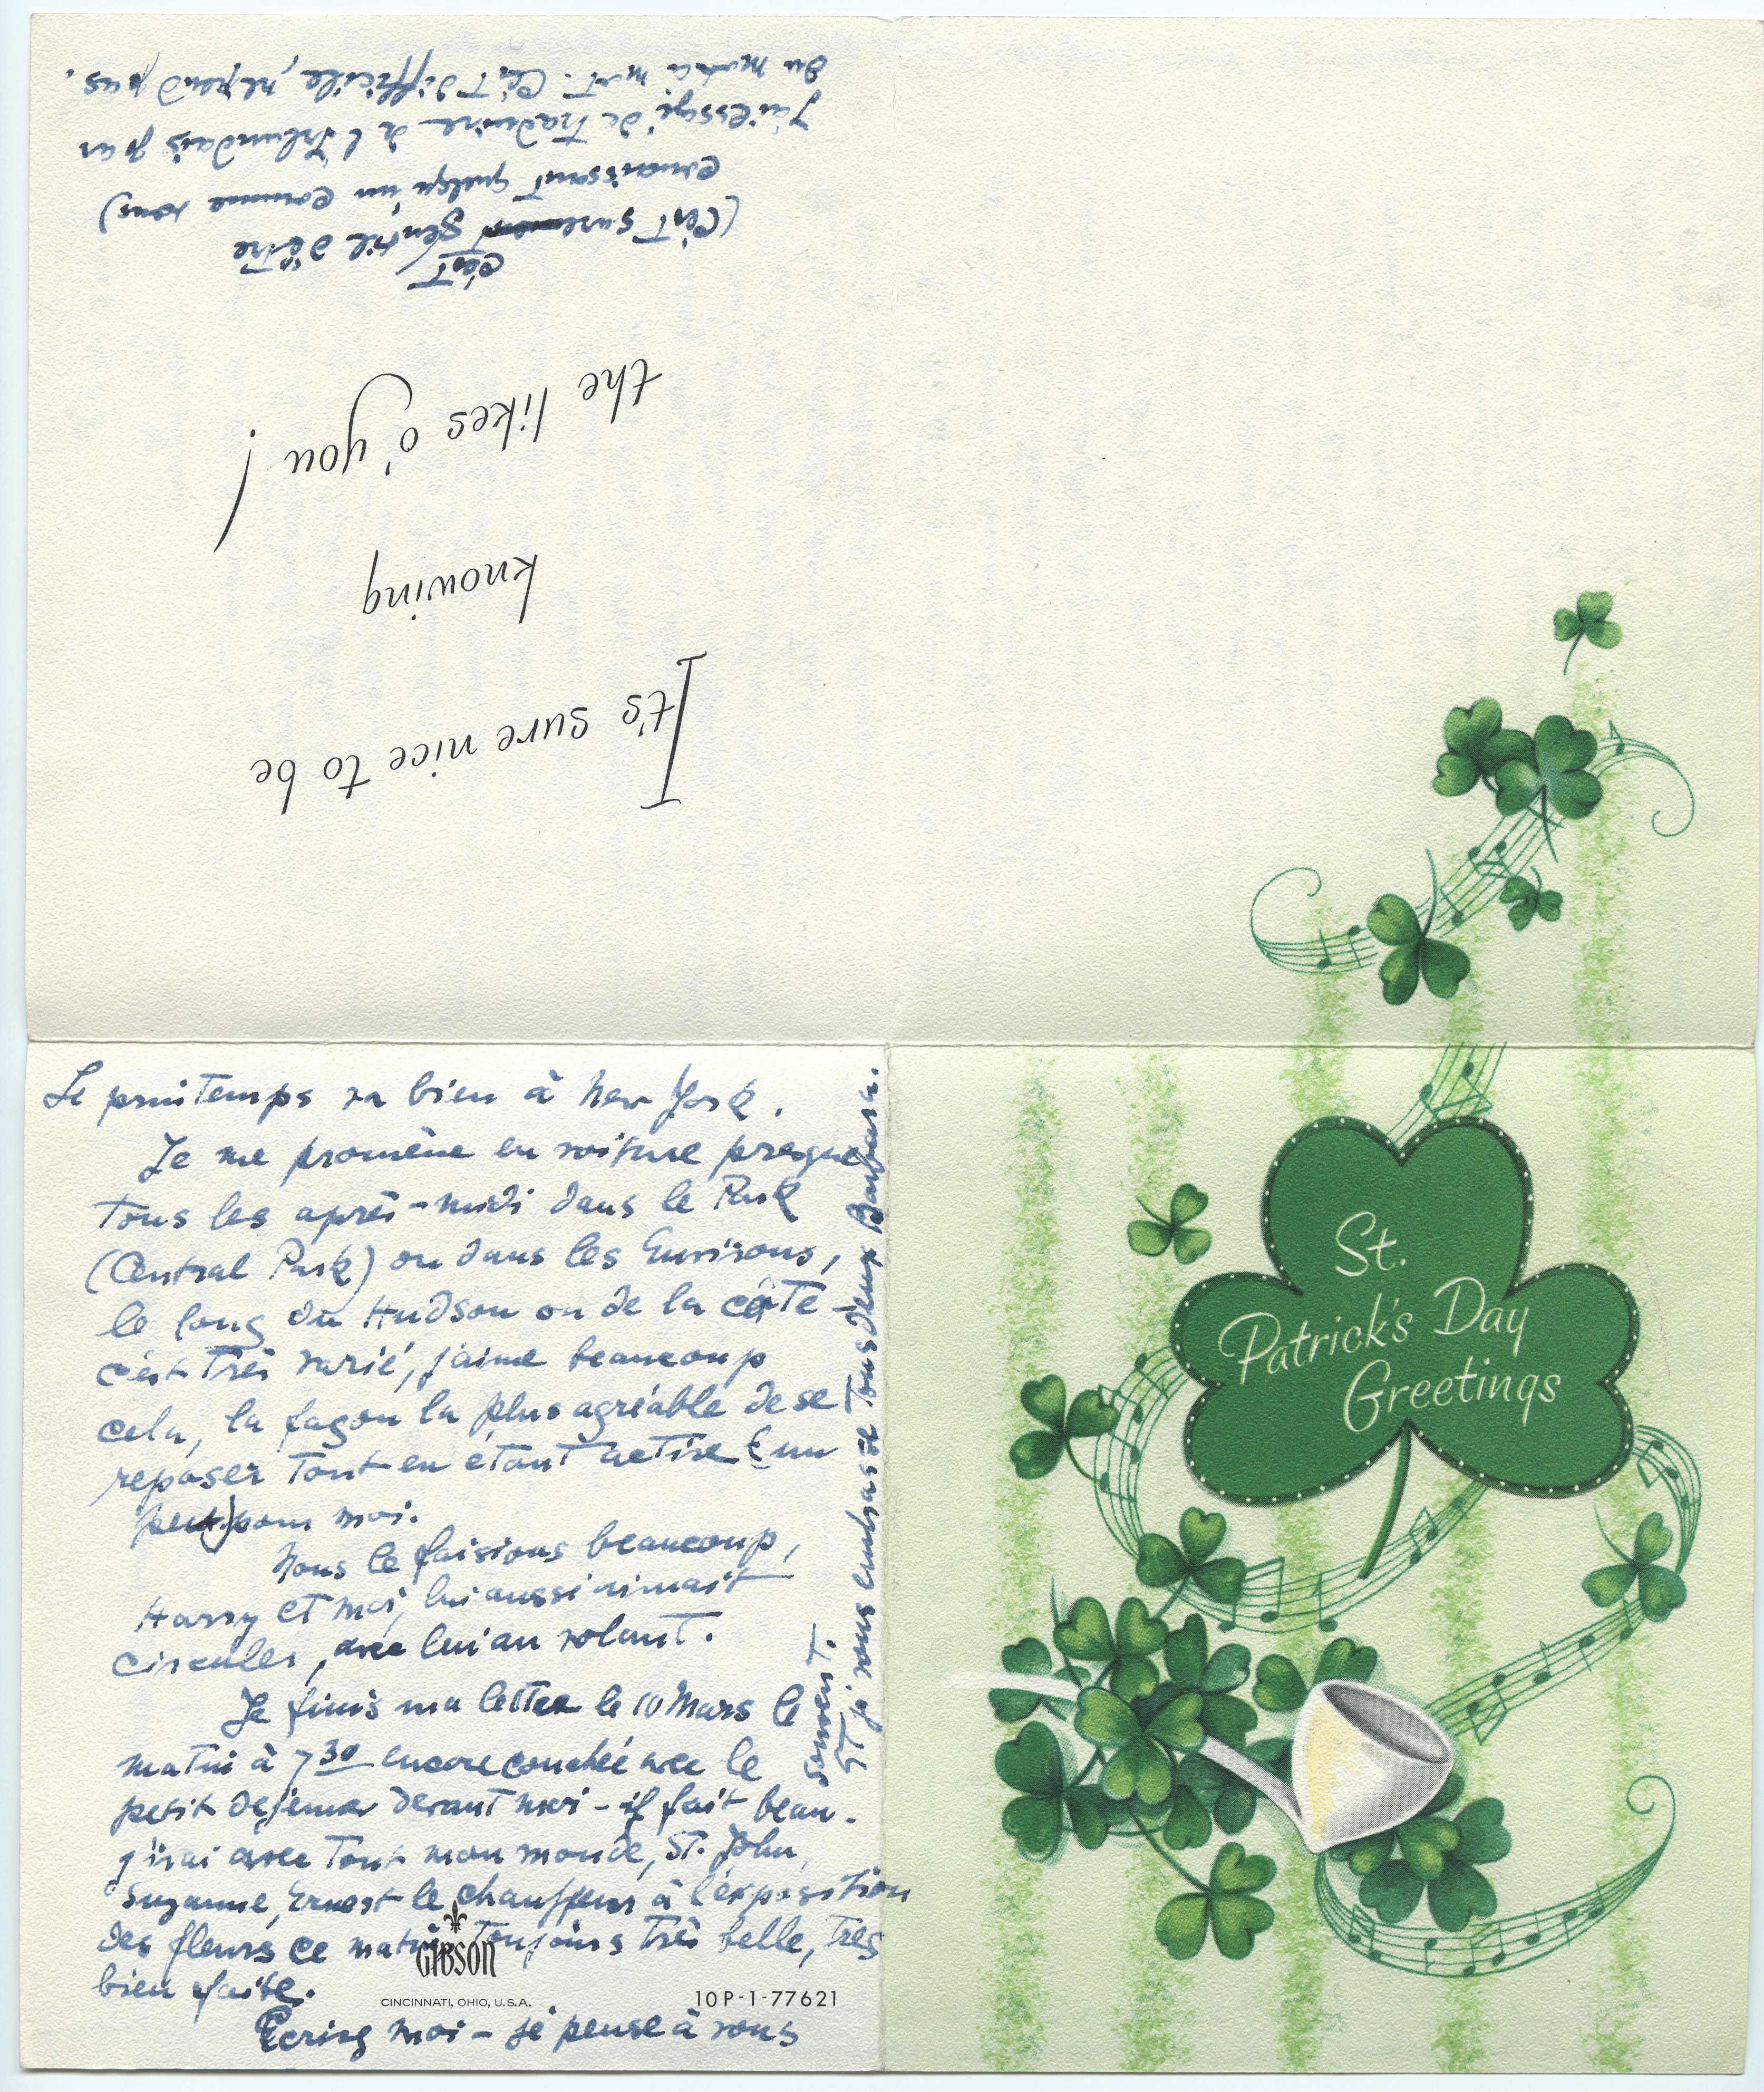 St.
Patrick's Day
Greetings
It's sure nice to be
knowing
the likes o' you!
c'est
(C'est surement gentil d'être
connaissant quelqu'un comme vous)
J'ai essayé de traduire de l'Irlandais par
du mot à mot. C'est difficile, ne pas.
Le printemps va bien à New York.
Je me promène en voiture presque
tous les après-midi dans le Park
(Central Park) ou dans les Environs,
le long du Hudson ou de la côte -
c'est très varié, j'aime beaucoup
cela, la façon la plus agréable de se
reposer tout en étant active (un
peu) pour moi.
Nous le faisions beaucoup,
Harry et moi, lui aussi aimait
circuler, avec lui au volant.
Je finis ma lettre le 10 Mars le
matin à 7 30 encore couchée avec le
petit dejeuner devant moi - il fait beau.
J'irai avec tout mon monde, St. John,
Suzanne, Ernest le chauffeur à l'exposition
des fleurs ce matin toujours très belle, très
bien faite.
Ecrivez moi - je pense à vous
souvent.
Et je vous embrasse tous deux Barbara.
GIBSON
CINCINNATI, OHIO, U.S.A.
10P-1-77621